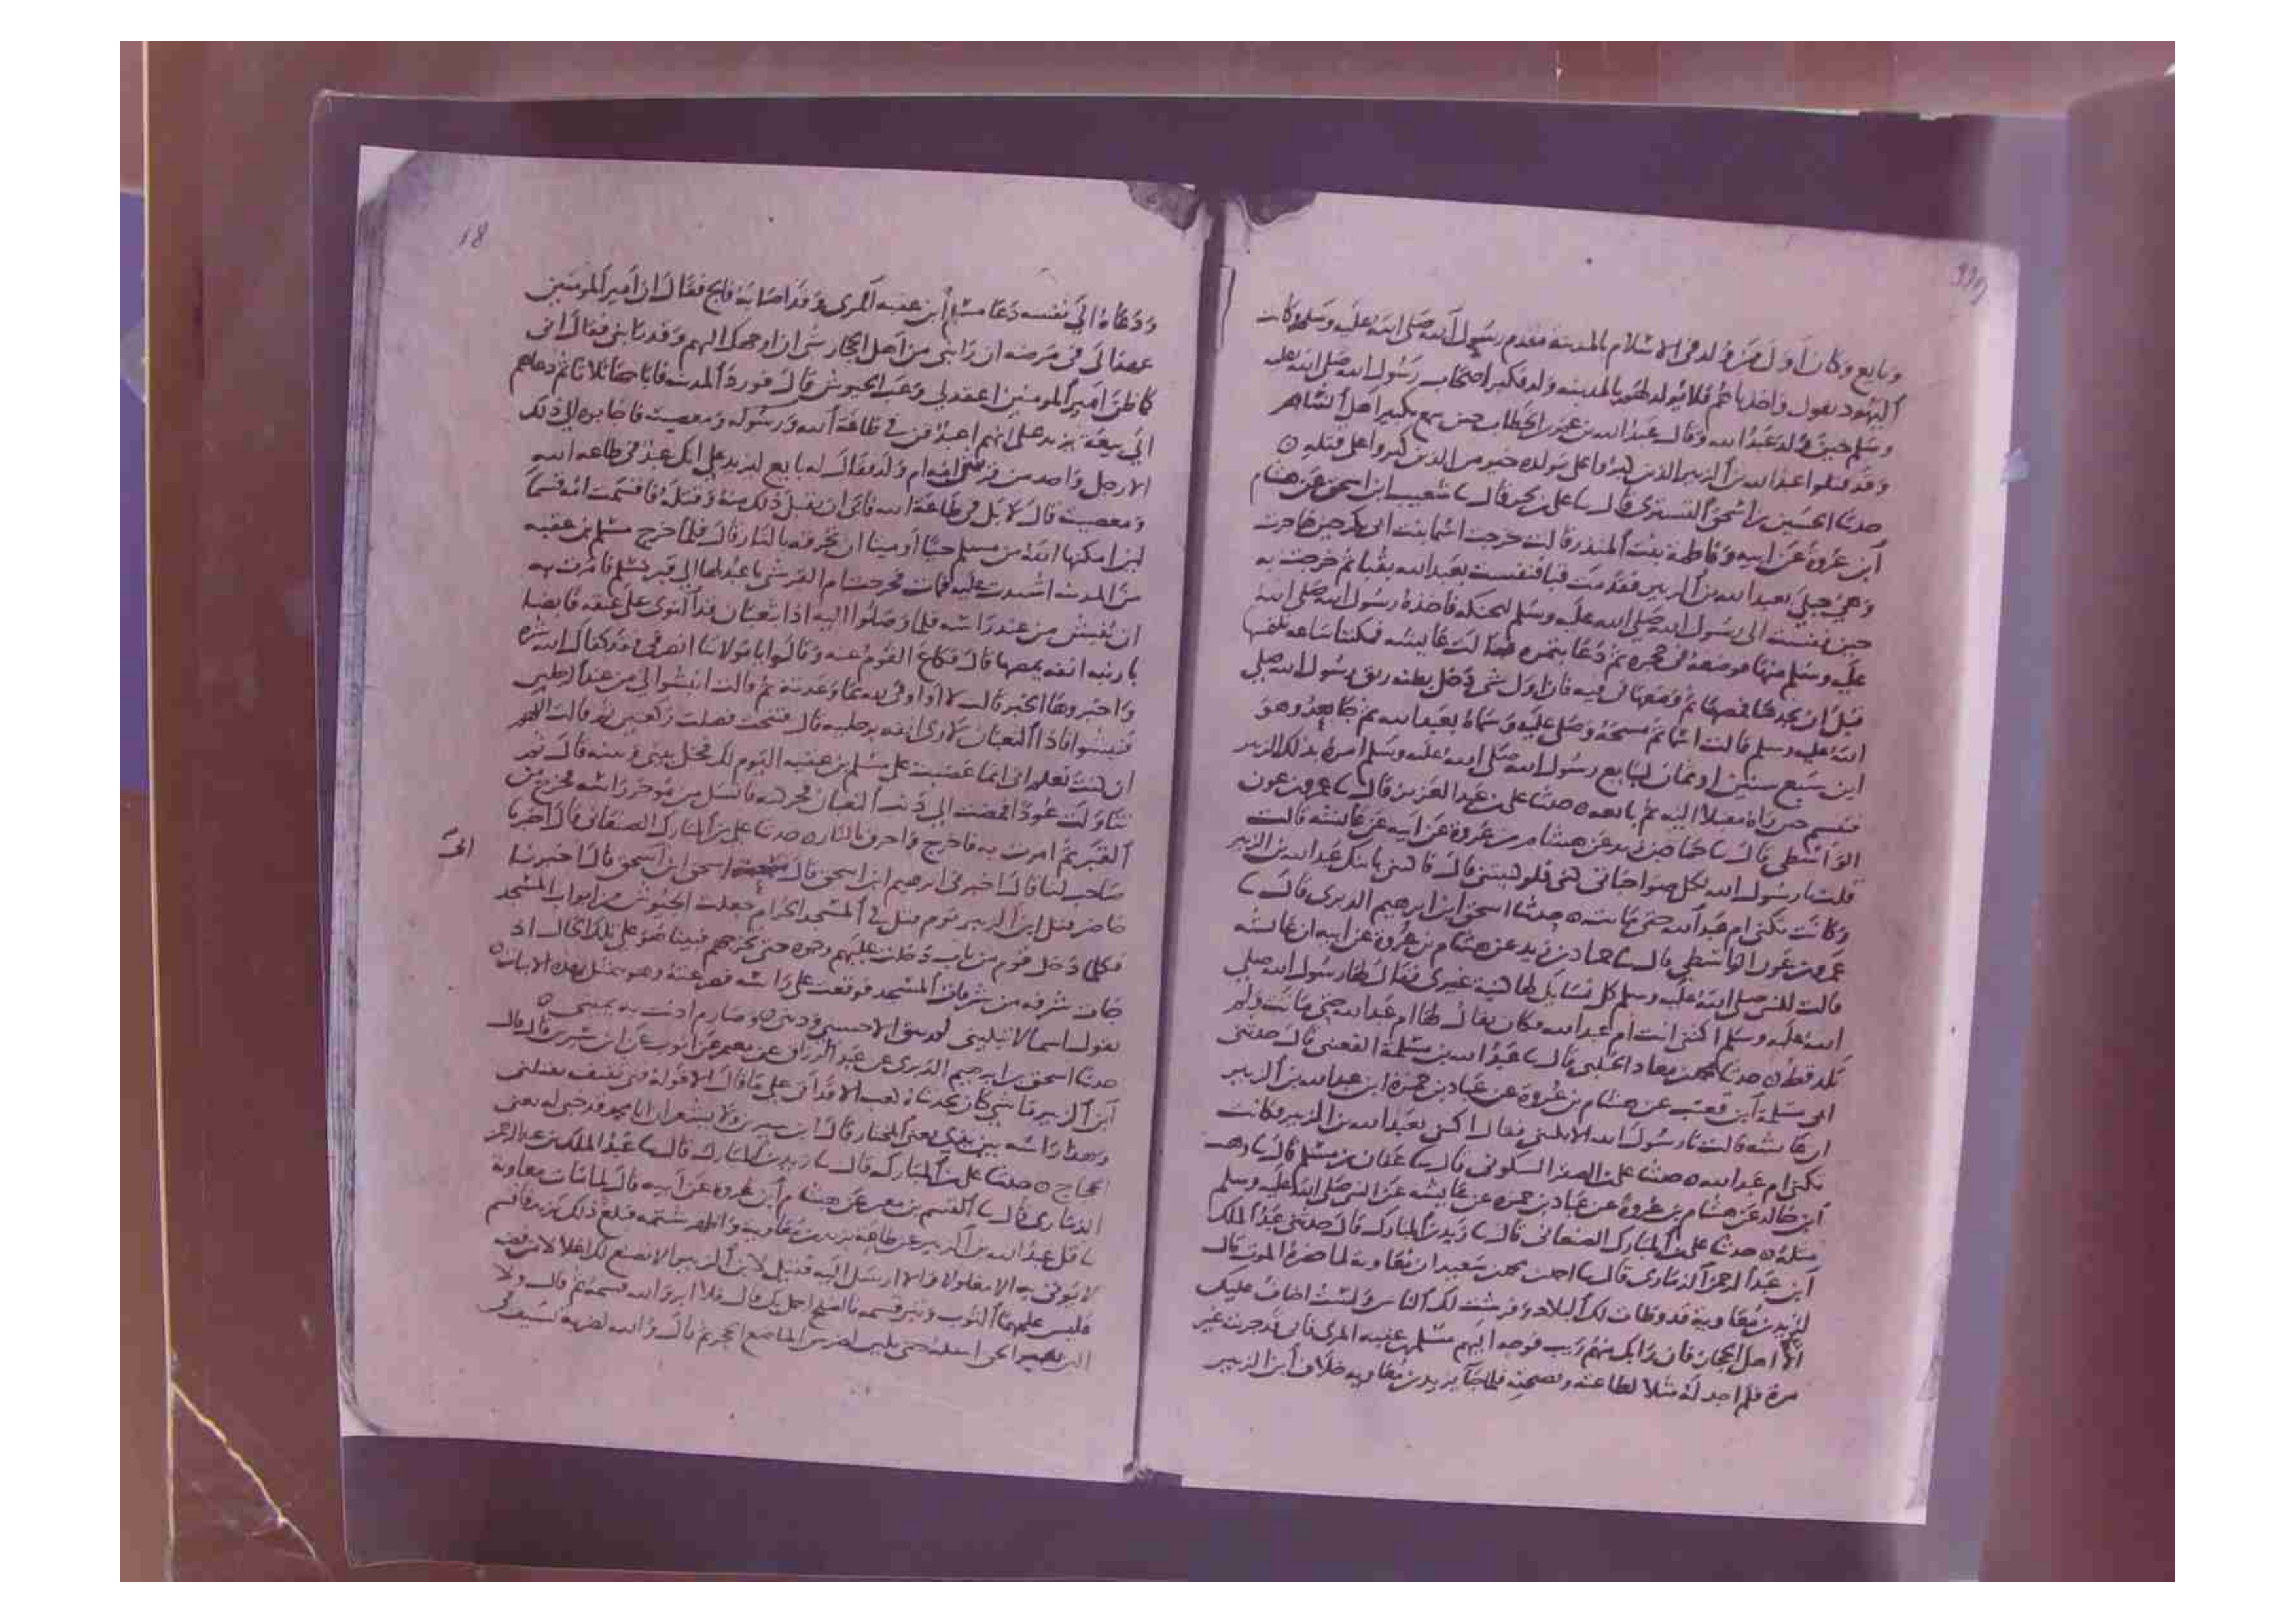 339
وبايع وكان اول من ولد في الاسلام بالمدينة مقدم رسول الله صلى الله عليه وسلم وكانت
اليهود تقول قد اخذناهم فلا يولد لهم بالمدينة ولد فكبر اصحاب رسول الله صلى الله عليه
وسلم حين ولد عبد الله وقال عبد الله بن عمر بن الخطاب حين سمع تكبير اهل الشام
وقد قتلوا عبد الله بن الزبير الذين كبروا على مولده خير من الذين كبروا على قتله ه
حدثنا الحسين بن اسحق التستري قال ثنا علي بن بحر قال ثنا شعيب ابن اسحق عن هشام
ابن عروة عن ابيه وفاطمة بنت المنذر قالت خرجت اسما بنت ابي بكر حين هاجرت
وهي حبلى بعبد الله بن الزبير فقدمت قبا فنفست بعبد الله بقبا ثم خرجت به
حين نفست الى رسول الله صلى الله عليه وسلم ليحنكه فاخذه رسول الله صلى الله
عليه وسلم منها فوضعه في حجره ثم دعا بتمرة فقالت عايشة فمكثنا ساعة نلتمسها
قبل ان نجدها فمضغها ثم وضعها في فيه فان اول شي دخل بطنه ريق رسول الله صلى
الله عليه وسلم قالت اسما ثم مسحه وصلى عليه وسماه بعبد الله ثم جا بعد وهو
ابن سبع سنين او ثمان ليبايع رسول الله صلى الله عليه وسلم امره بذلك الزبير
فتبسم حين راه مقبلا اليه ثم بايعه ه حدثنا علي بن عبد العزيز قال ثنا عمرو بن عون
الواسطي قال ثنا حماد بن زيد عن هشام بن عروة عن ابيه عن عايشة قالت
قلت يا رسول الله كل صواحباتي كنى فلو كنيتني قال فاكتني بابنك عبد الله بن الزبير
وكانت تكنى ام عبد الله حتى ماتت ه حدثنا اسحق ابن ابرهيم الدبري قال ثنا
عمرو بن عون الواسطي قال ثنا حماد بن زيد عن هشام بن عروة عن ابيه ان عايشة
قالت للنبي صلى الله عليه وسلم كل نسايك لها كنية غيري فقال لها رسول الله صلى
الله عليه وسلم اكتني انت ام عبد الله فكان يقال لها ام عبد الله حتى ماتت ولم
تلد قط ه حدثنا محمد بن معاذ الحلبي قال ثنا عبد الله بن مسلمة القعنبي قال حدثني
ابي مسلمة ابن قعنب عن هشام بن عروة عن عباد بن حمزة ابن عبد الله بن الزبير
ان عايشة قالت يا رسول الله الا تكنيني فقال اكتني بعبد الله بن الزبير فكانت
تكنى ام عبد الله ه حدثنا علي بن الصقر السكوني قال ثنا عفان بن مسلم قال ثنا وهيب
ابن خالد عن هشام بن عروة عن عباد بن حمزة عن عايشة عن النبي صلى الله عليه وسلم
مثله ه حدثنا علي بن المبارك الصنعاني قال ثنا زيد بن المبارك قال حدثني عبد الملك
ابن عبد الرحمن الذماري قال ثنا محمد بن سعيد ان معاوية لما حضره الموت قال
ليزيد بن معاوية قد وطات لك البلاد وفرشت لك الناس ولست اخاف عليك
الا اهل الحجاز فان رابك منهم ريب فوجه اليهم مسلم بن عقبة المري فاني قد جربته غير
مرة فلم اجد له مثلا لطاعته ونصحته فلما جا يزيد بن معاوية خلاف ابن الزبير
18
ودعاه الى نفسه دعا مسلم ابن عقبة المري وقد اصابه فالج فقال ان امير المومنين
عهد الي في مرضه ان رابني من اهل الحجاز شي ان اوجهك اليهم وقد رابني فقال اني
كما ظن امير المومنين اعقد لي وعب الجيوش قال فورد المدينة فاباحها ثلاثا ثم دعاهم
الى بيعة يزيد على انهم اعبد قن في طاعة الله ورسوله ومعصيته فاجابوه الى ذلك
الا رجل واحد من قريش امه ام ولد فقال له بايع ليزيد على انك عبد في طاعة الله
ومعصيته قال لا بل في طاعة الله فابى ان يقبل ذلك منه وقتله فاقسمت امه قسما
لئن امكنها الله من مسلم حيا او ميتا ان تحرقه بالنار قال فلما خرج مسلم بن عقبة
من المدينة اشتدت علته فمات فخرجت ام القرشي باعبد لها الى قبر مسلم فامرت به
ان ينبش من عند راسه فلما وصلوا اليه اذا ثعبان قد التوى على عنقه قابضا
بارنبة انفه يمصها قال فكاع القوم عنه وقالوا يا مولاتنا انصرفي فقد كفاك الله شره
واخبروها الخبر قالت لا او اوفي لله بما وعدته ثم قالت انبشوا لي من عند الرجلين
فنبشوا فاذا الثعبان لاوي ذنبه برجليه قال فتنحت فصلت ركعتين ثم قالت اللهم
ان كنت تعلم اني انما غضبت على مسلم بن عقبة اليوم لك فخل بيني وبينه قال ثم
تناولت عودا فمضت الى ذنب الثعبان فحركته فانسل من موخر راسه فخرج من
القبر ثم امرت به فاخرج واحرق بالنار ه حدثنا علي بن المبارك الصنعاني قال اخبرنا
صاحب لنا قال اخبرني ابرهيم ابن اسحق قال اسحق ابن اسحق قال انا حاضر
حاضر قتل ابن الزبير يوم قتل في المسجد الحرام جعلت الجيوش من ابواب المسجد
فكلما دخل قوم من باب دخلت عليهم وحده حتى يخرجهم فبينا هو على تلك الحال اذ
جات شرفة من شرفات المسجد فوقعت على راسه فصرعته وهو يتمثل بهذه الابيات ه
يقول اسما لا تبكيني لم يبق الا حسبي وديني ه وصارم لاثت به يميني ه
حدثنا اسحق بن ابرهيم الدبري عن عبد الرزاق عن معمر عن ايوب عن ابن سيرين قال قال
ابن الزبير ما شي كان يحدثناه كعب الا قد اتى على ما قال الا قوله فتى ثقيف يقتلني
وهذا راسه بين يدي يعني المختار قال ابن سيرين ولا يشعر ان ابا محمد قد خبي له يعني
الحجاج ه حدثنا علي بن المبارك قال ثنا زيد بن المبارك قال ثنا عبد الملك بن عبد الرحمن
الذماري قال ثنا القسم بن معن عن هشام ابن عروة عن ابيه قال لما مات معاوية
تثاقل عبد الله بن الزبير عن طاعة يزيد بن معاوية واظهر شتمه فبلغ ذلك يزيد فاقسم
لا يوتى به الا مغلولا والا ارسل اليه فقيل لابن الزبير الا نصنع لك اغلالا من فضة
فلبس عليها الثوب وتبر قسمه فالصلح اجمل بك قال فلا ابر والله قسمه ثم قال ولا
الين لغير الحق اسله حتى يلين لضرس الماضغ الحجر ثم قال والله لضربة بسيف في